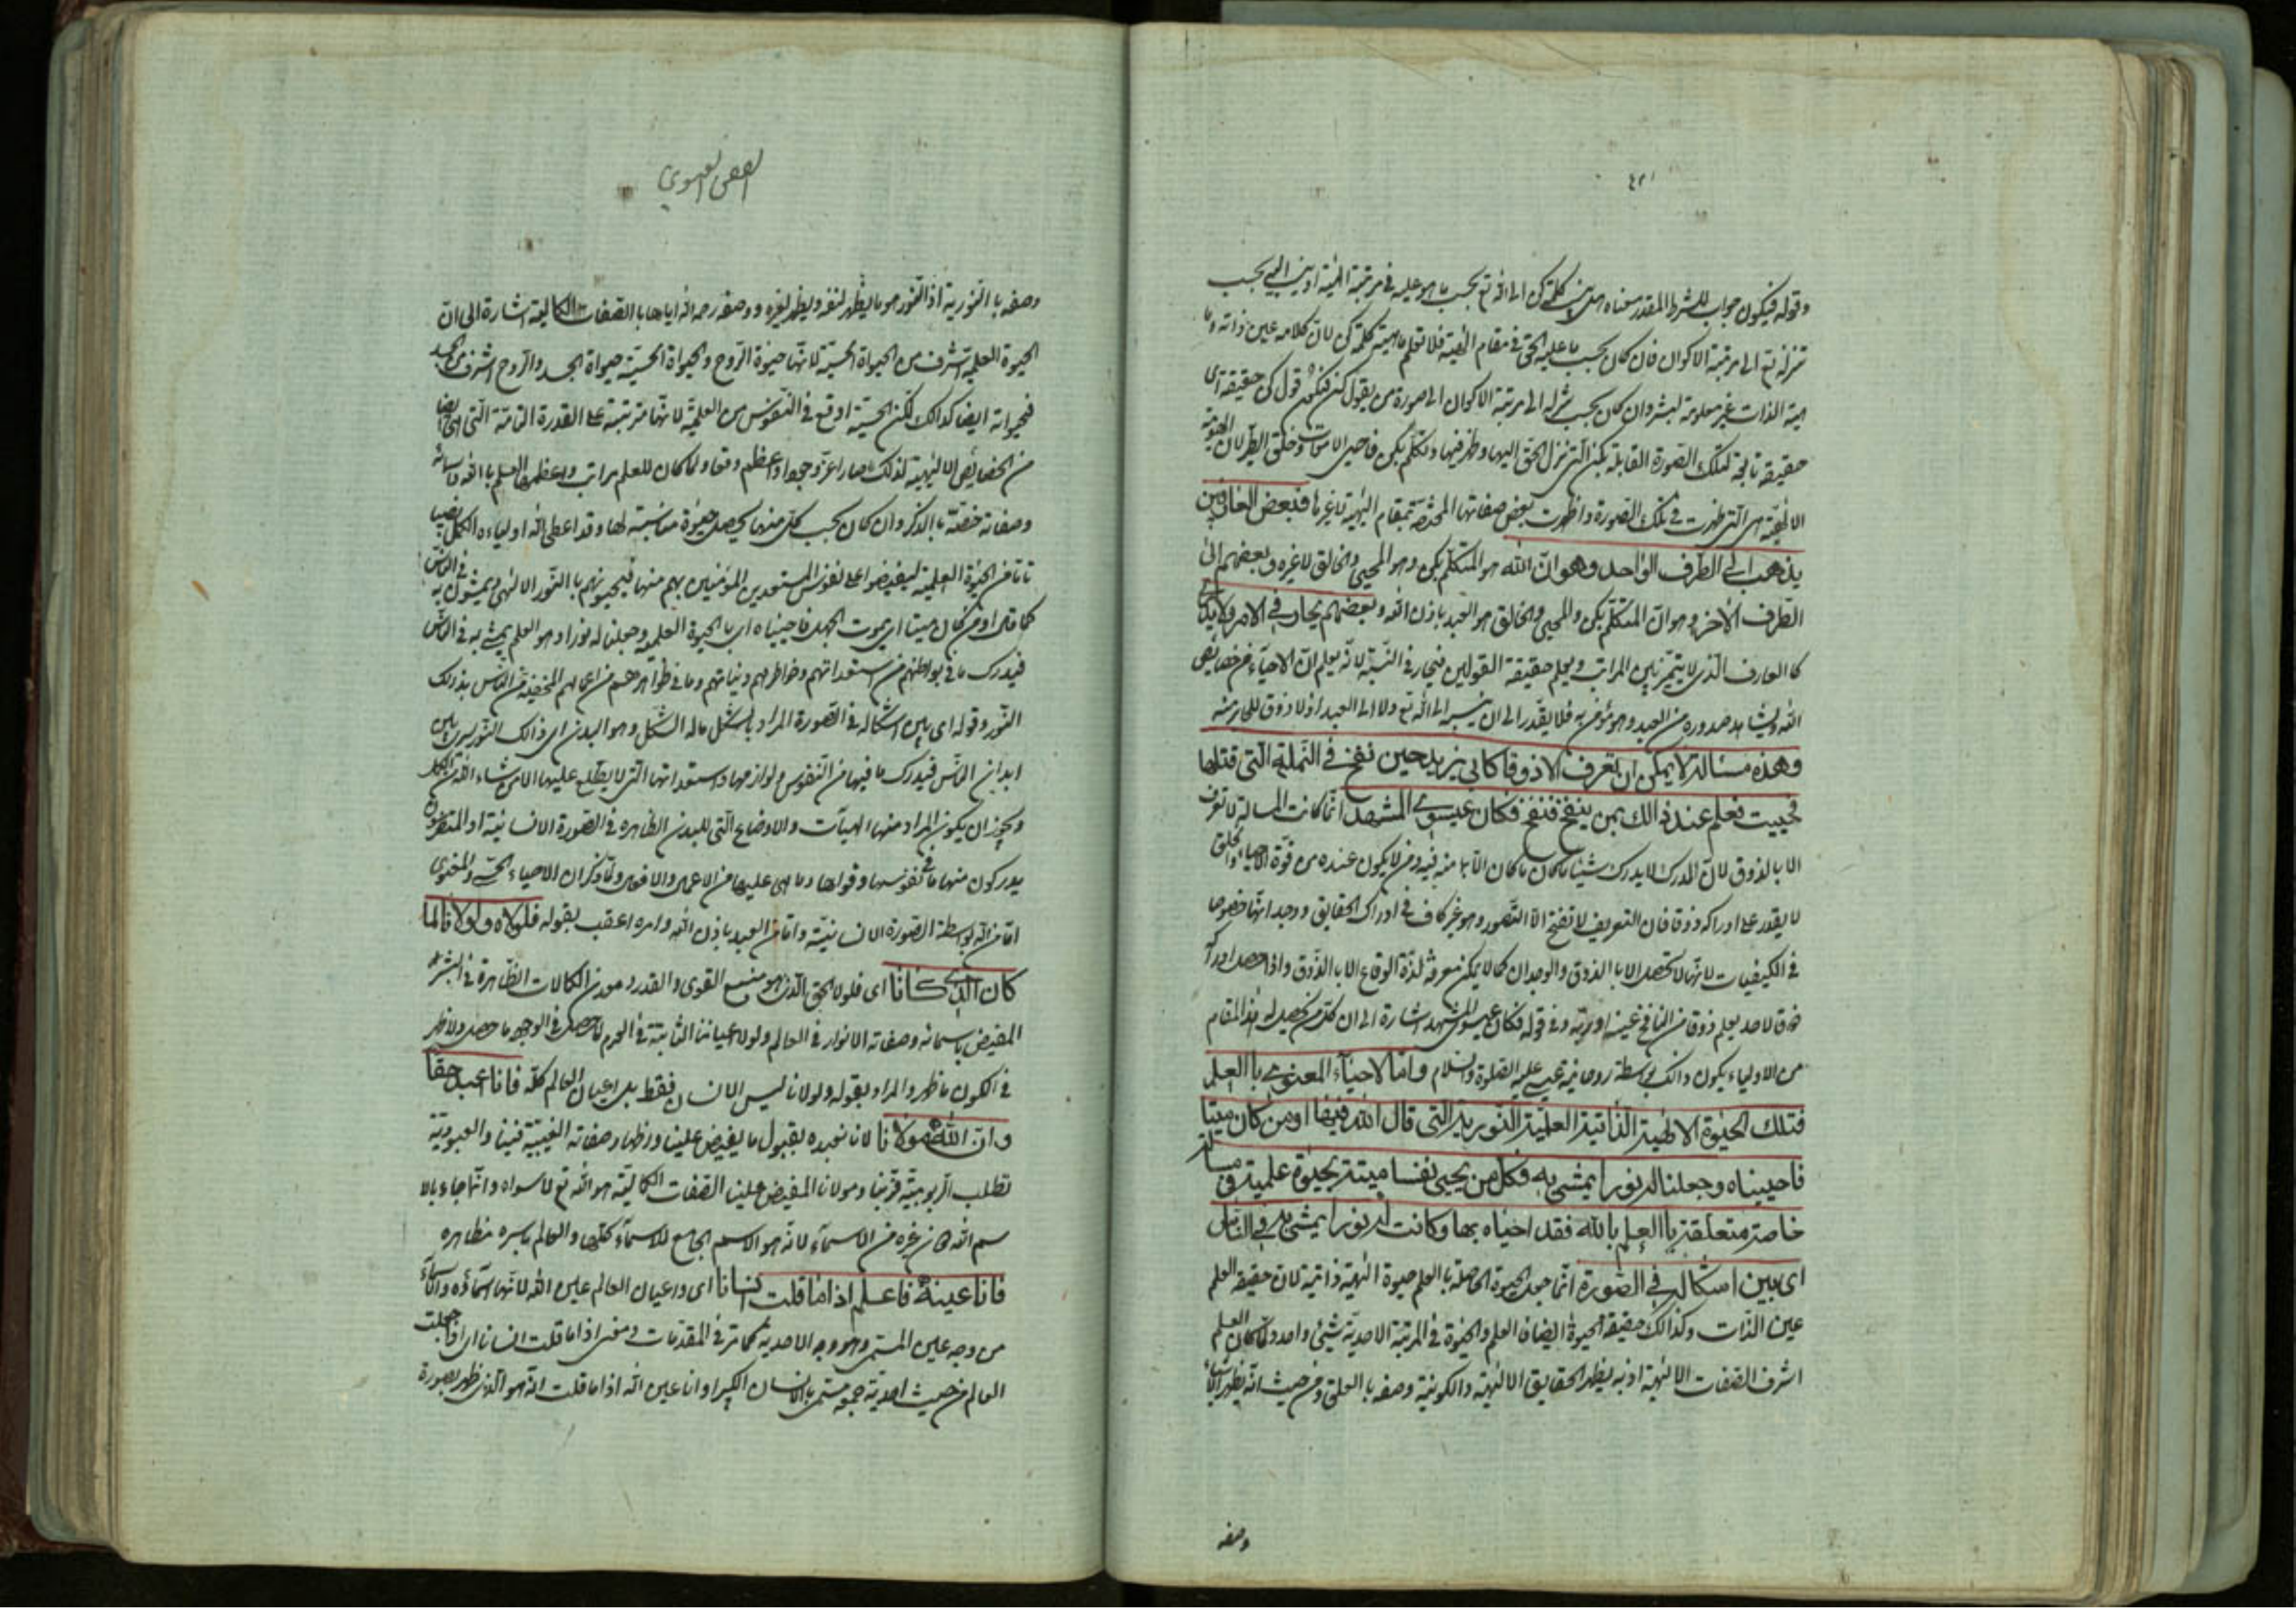 ٤٢١
وقوله فيكون جواب للشرط المقدر معناه اى بين كلمة كن الى الله تع بحسب ما هو عليه فى مرتبة الهيته او بنزل اليه بحسب
تنزله تع الى مرتبة الاكوان فان كان بحسب ما عليه الحق فى مقام الهيته فلا تعلم ماهية كلمة كن لان كلامه عين ذاته وما
هية الذات غير معلومة لبشر وان كان بحسب تنزله الى مرتبة الاكوان الى صورة من يقول كن فيكون قول كن حقيقة اى
حقيقة تابعة لتلك الصورة القابلة بكن التى نزل الحق اليها وظهر فيها وتكلم بكن فاحيى الاموات وخلق الطير لان الهوية
الالهية هى التى ظهرت فى تلك الصورة واظهرت بعض صفاتها المختصة بمقام الهية لا غيرها فبعض العارفين
يذهب الى الطرف الواحد وهو ان الله هو المتكلم بكن وهو المحيى والخالق لا غيره وبعضهم الى
الطرف الآخر وهو ان المتكلم بكن والمحيى والخالق هو العبد باذن الله وبعضهم يحار فى الامر ولا يدرى
كالعارف الذى لا يتميز بين المراتب ويعلم حقيقة القولين فيحار فى النسبة لانه يعلم ان الاحياء من خصايص
الله ويشاهد صدوره من العبد وهو مؤمن به فلا يقدر الى ان ينسبه الى الله تع ولا الى العبد اذ لا ذوق للحاير منه
وهذه مسألة لا يمكن ان تعرف الا ذوقا كابى يزيد حين نفخ فى النملة التى قتلها
فحييت فعلم عند ذالك بمن ينفخ فنفخ فكان عيسوى المشهد انما كانت المسألة لا تعرف
الا بالذوق لان المدرك لا يدرك شيئا ما كان ما كان الا بما منه فيه ومن لا يكون عنده من قوة الاحياء والخلق
لا يقدر على ادراكه ذوقا فان التعريف لا تفتح الا التصور وهو غير كاف فى ادراك الحقايق ووجدانها خصوصا
فى الكيفيات لانها لا تحصل الا بالذوق والوجدان كما لا يمكن معرفة لذة الوقاع الا بالذوق واذا حصل ادراك
ذوق لاحد يعلم ذوقا من النافخ عينه او ربه وفى قوله فكان عيسوى المشهد اشارة الى ان كل من يحصل له هذا المقام
من الاولياء يكون ذالك بواسطة روحانية عيسى عليه الصلوة والسلام واما الاحياء المعنوى باالعلم
فتلك الحيوة الالهية الذاتية العلية النورية التى قال الله فيها او من كان ميتا
فاحييناه وجعلنا له نورا يمشى به فكل من يحيى نفسا ميتة بحيوة علمية فى مسألة
خاصة متعلقة باالعلم بالله فقد احياه بها وكانت له نورا يمشى به فى الناس
اى بين اشكاله فى الصورة انما جعل الحيوة الحاصلة باالعلم حيوة الهية ذاتية لان حقيقة العلم
عين الذات وكذالك حقيقة الحيوة ايضا فان العلم والحيوة فى المرتبة الاحدية شئ واحد ولما كان العلم
اشرف الصفات الالهية اذ به يظهر الحقايق الالهية والكونية وصفه باالعلى ومن حيث انه يظهر الاشياء
وصفه
الفص العيسوى
وصفه باالنورية اذ النور هو ما يظهر لنفسه ويظهر لغيره ووصفه رحمه الله اياها باالصفات الكمالية اشارة الى ان
الحيوة العلمية اشرف من الحيواة الحسية لانها حيوة الروح والحيواة الحسية حيواة الجسد والروح اشرف من الجسد
فحيواته ايضا كذالك لكن الحسية اوقع فى النفوس من العلمية لانها مترتبة على القدرة التامة التى هى ايضا
من الخصايص الالهية لذلك صار اعز وجودا واعظم وقعا ولما كان للعلم مراتب واعظمها العلم باالله واسمائه
وصفاته خصه باالذكر وان كان بحسب كل منها يحصل حيوة مناسبة لها وقد اعطى الله اولياءه الكمل نصيبا
تاما من الحيوة العلمية ليفيضوا على نفوس المستعدين المؤمنين بهم منها فيحيونهم باالنور الالهى ويمشون به فى الناس
كما قال او من كان ميتا اى بموت الجهل فاحييناه اى باالحيوة العلمية وجعلنا له نورا وهو العلم يمشى به فى الناس
فيدرك ما فى بواطنهم من استعداتهم وخواطرهم ونياتهم وما فى ظواهرهم من اعمالهم المخفية من الناس بذلك
النور وقوله اى بين اشكاله فى الصورة المراد بالشكل ماله الشكل وهو البدن اى ذالك النور يسرى بين
ابدان الناس فيدرك ما فيها من النفوس ولوازمها واستعداتها التى لا يطلع عليها الا من شاء الله من الكمل
ويجوز ان يكون المراد منها الهيآت والاوضاع التى للبدن الظاهره فى الصورة الانسانية او المتفرسون
يدركون منها ما فى نفوسها وقواها وما هى عليها من الاعمال والافعال ولما ذكر ان الاحياء الحسى والمعنوى
اما من الله بواسطة الصورة الانسانية واما من العبد باذن الله وامره اعقب بقوله فلولاه ولولانا لما
كان الذى كانا اى فلولا الحق الذى هو منبع القوى والقدر ومعدن الكمالات الظاهرة فى البشر
المفيض باسمائه وصفاته الانوار فى العالم ولولا اعياننا الثابتة فى العدم لما حصل فى الوجود ما حصل ولا ظهر
فى الكون ما ظهر والمراد بقوله ولولانا ليس الانسان فقط بل اعيان العالم كله فانا اعبد حقا
وان الله مولانا لانا نعبده بقبول ما يفيض علينا وبظهار صفاته الغيبية فينا والعبودية
تطلب الربوبية قربنا ومولانا المفيض علينا الصفات الكمالية هو الله تع لا سواه وانما جاء بالا
سم الله من غيره من الاسمآء لانه هو الاسم الجامع للاسمآء كلها والعالم باسره مظاهره
فانا عينه فاعلم اذا ما قلت انسانا اى واعيان العالم عين الله لانها اسماؤه والاسمآء
من وجه عين المسمى وهو وجه الاحدية كما مر فى المقدمات ومعنى اذا ما قلت انسانا اى اذا جعلت
العالم من حيث احدية جمعه مسمى باالانسان الكبير او انا عين الله اذا ما قلت انه هو الذى ظهر بصورة